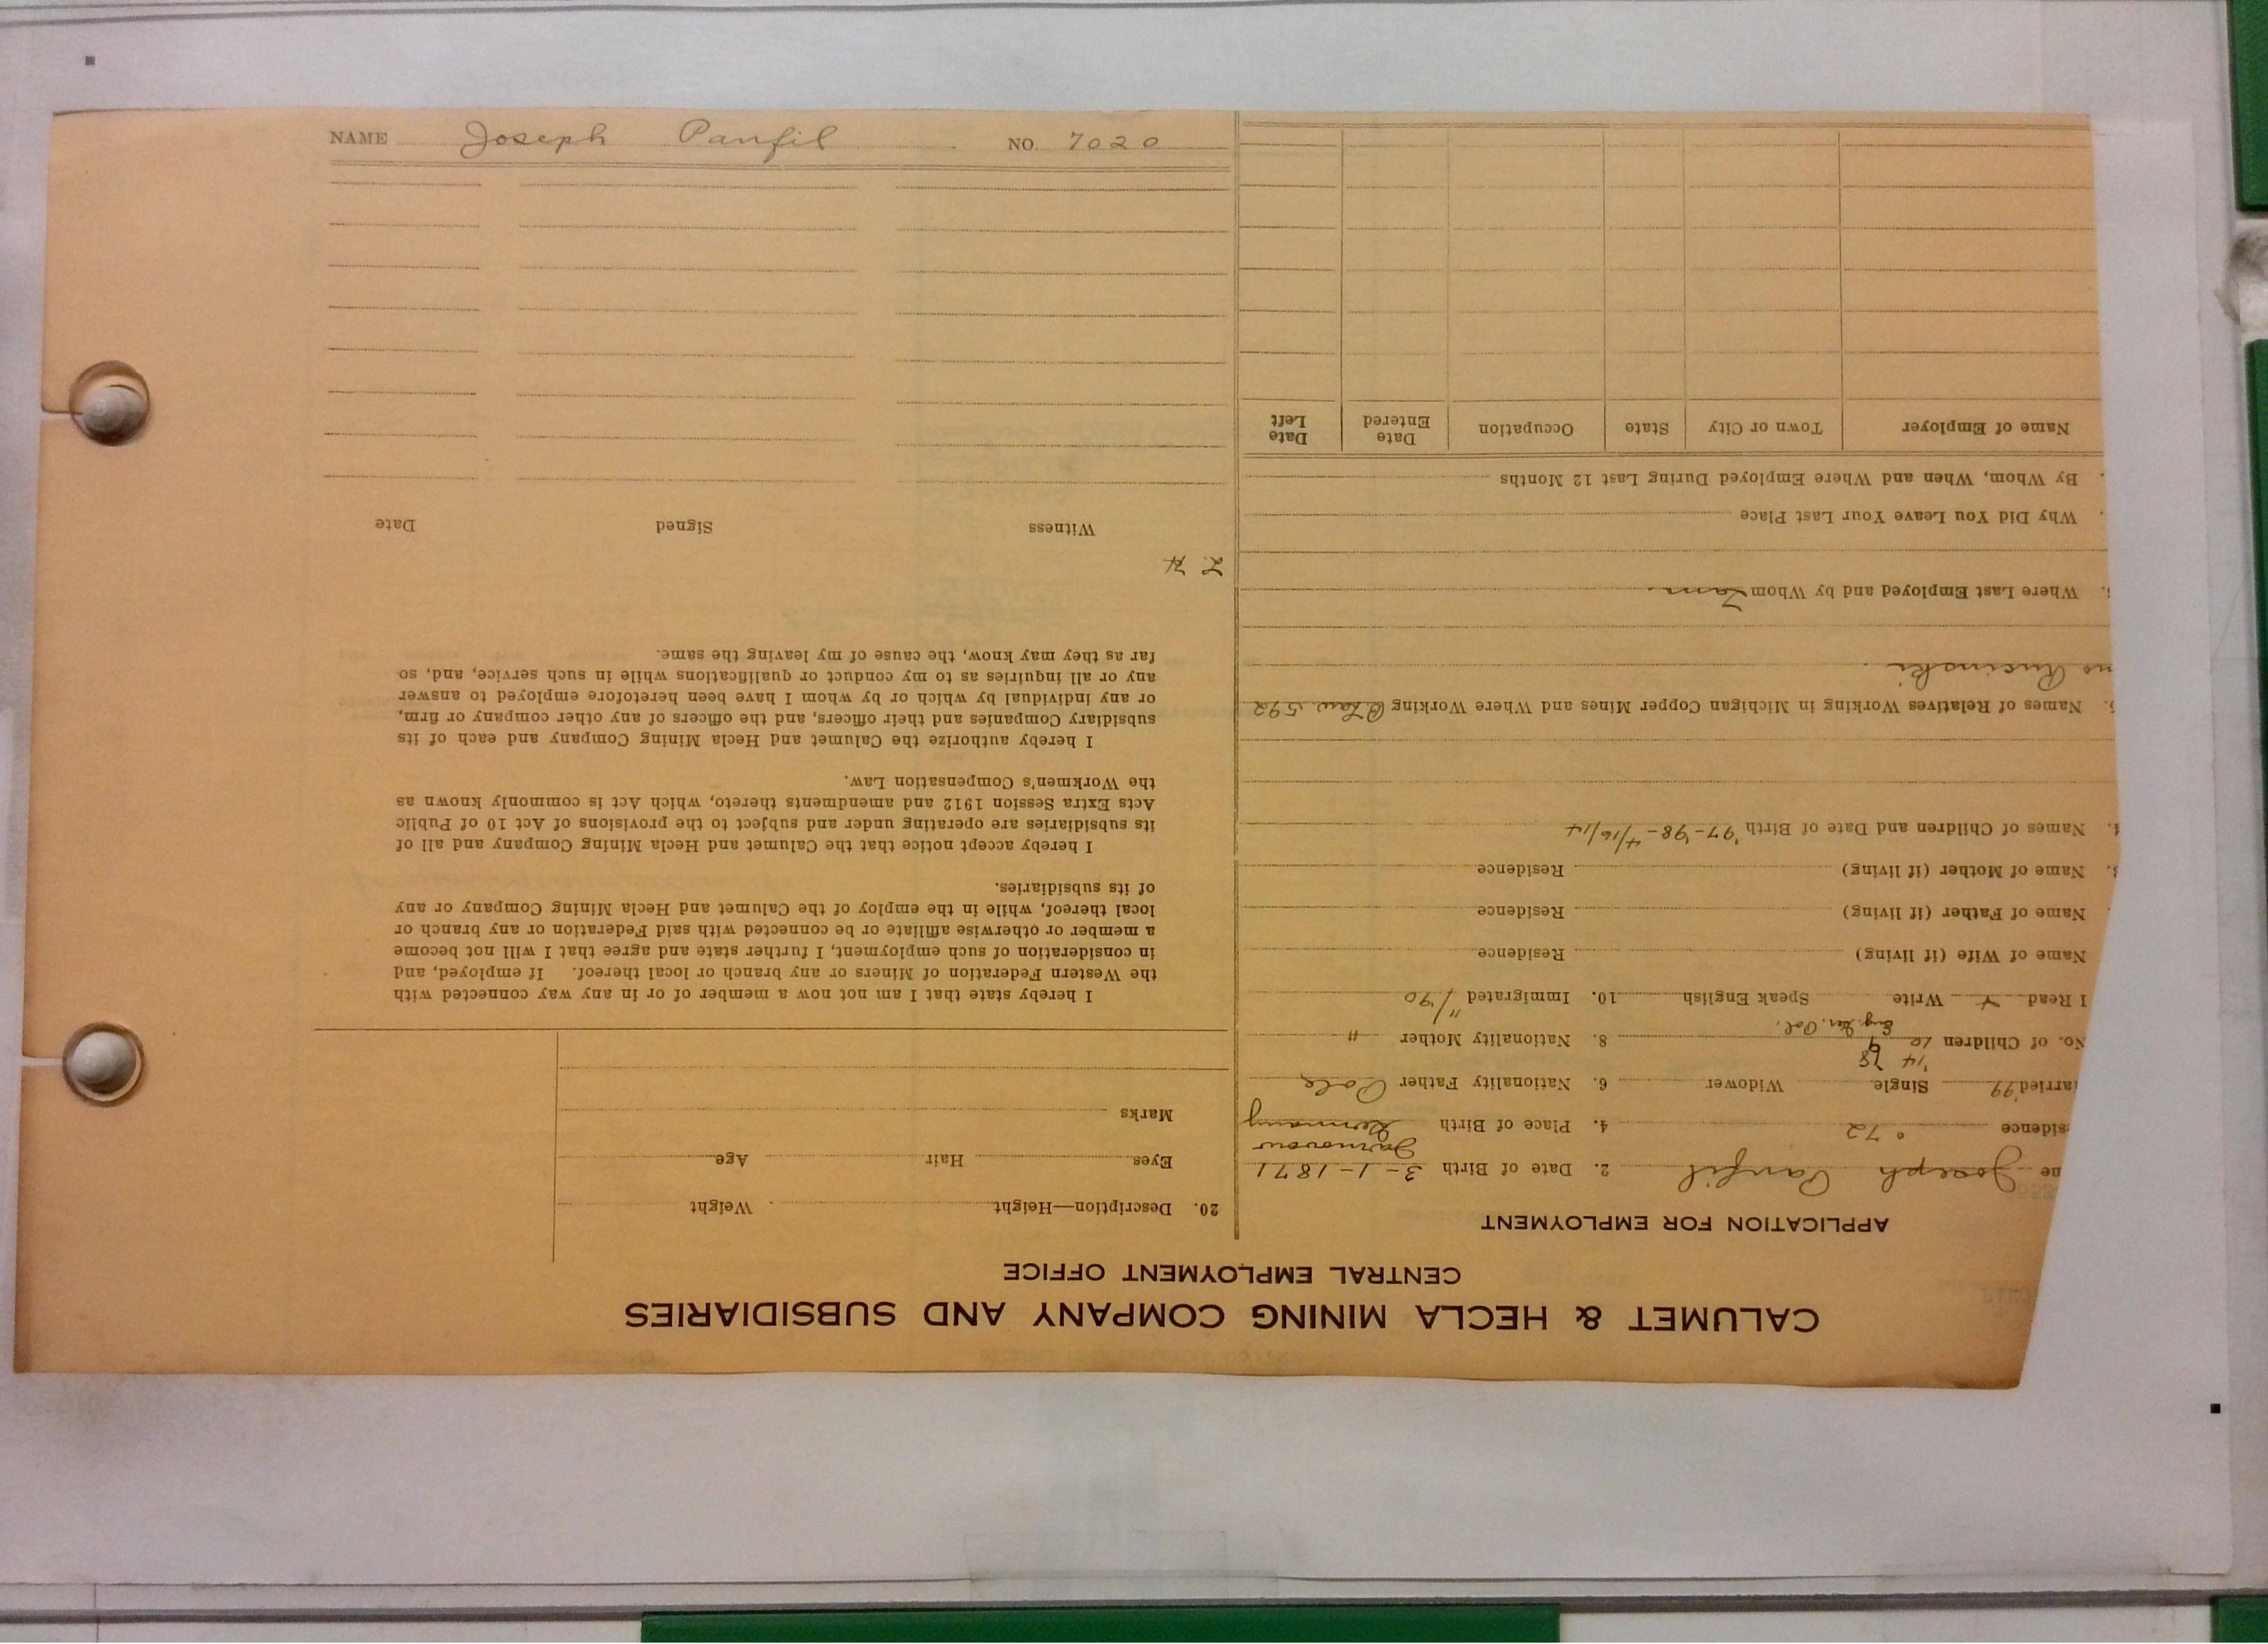 CALUMET & HECLA MINING COMPANY AND SUBSIDIARIES
CENTRAL EMPLOYMENT OFFICE
APPLICATION FOR EMPLOYMENT
me Joseph Panfil 2. Date of Birth 3-1-1871
sidence 72 4. Place of Birth Germany
arried '99 Single Widower 6. Nationality Father Pole
'14
No. of Children 10 9 8. Nationality Mother "
Eng. Ger. Pol.
I Read Write Speak English 10. Immigrated '90
Name of Wife (if living) Residence
Name of Father (if living) Residence
Name of Mother (if living) Residence
4. Names of Children and Date of Birth '97-'98-4/16/14
5. Names of Relatives Working in Michigan Copper Mines and Where Working B. Law 592
Where Last Employed and by Whom Tam.
Why Did You Leave Your Last Place
By Whom, When and Where Employed During Last 12 Months
Name of Employer Town or City State Occupation Date Entered Date Left
20. Description—Height Weight
Eyes Hair Age
Marks
I hereby state that I am not now a member of or in any way connected with
the Western Federation of Miners or any branch or local thereof. If employed, and
in consideration of such employment, I further state and agree that I will not become
a member or otherwise affiliate or be connected with said Federation or any branch or
local thereof, while in the employ of the Calumet and Hecla Mining Company or any
of its subsidiaries.
I hereby accept notice that the Calumet and Hecla Mining Company and all of
its subsidiaries are operating under and subject to the provisions of Act 10 of Public
Acts Extra Session 1912 and amendments thereto, which Act is commonly known as
the Workmen's Compensation Law.
I hereby authorize the Calumet and Hecla Mining Company and each of its
subsidiary Companies and their officers, and the officers of any other company or firm,
or any individual by which or by whom I have been heretofore employed to answer
any or all inquiries as to my conduct or qualifications while in such service, and, so
far as they may know, the cause of my leaving the same.
Witness Signed Date
NAME Joseph Panfil NO. 7020